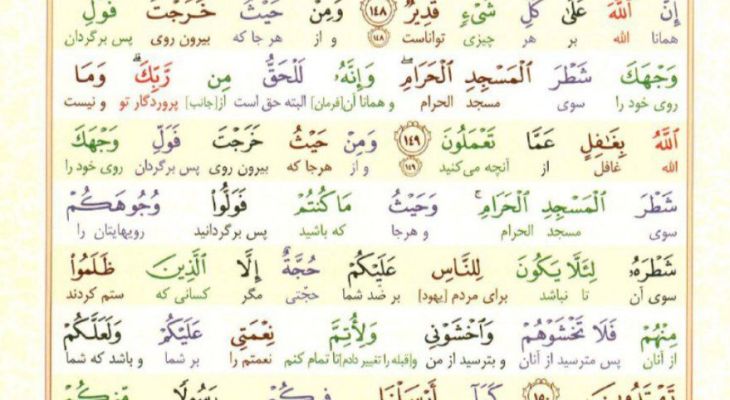 إِنَّ اللَّهَ عَلَىٰ كُلِّ شَيْءٍ قَدِيرٌ ﴿١٤٨﴾ وَمِنْ حَيْثُ خَرَجْتَ فَوَلِّ
همانا الله بر هر چیزی تواناست ﴿١٤٨﴾ و از هر جا که بیرون روی پس برگردان
وَجْهَكَ شَطْرَ الْمَسْجِدِ الْحَرَامِ ۖ وَإِنَّهُ لَلْحَقُّ مِن رَّبِّكَ ۗ وَمَا
روی خود را سوی مسجد الحرام و همانا آن[فرمان] البته حق است از[جانب] پروردگار تو و نیست
اللَّهُ بِغَافِلٍ عَمَّا تَعْمَلُونَ ﴿١٤٩﴾ وَمِنْ حَيْثُ خَرَجْتَ فَوَلِّ وَجْهَكَ
الله غافل از آنچه می‌کنید ﴿١٤٩﴾ و از هرجا که بیرون روی پس برگردان روی خود را
شَطْرَ الْمَسْجِدِ الْحَرَامِ ۚ وَحَيْثُ مَا كُنتُمْ فَوَلُّوا وُجُوهَكُمْ
سوی مسجد الحرام و هرجا که باشید پس برگردانید رویهایتان را
شَطْرَهُ لِئَلَّا يَكُونَ لِلنَّاسِ عَلَيْكُمْ حُجَّةٌ إِلَّا الَّذِينَ ظَلَمُوا
سوی آن تا نباشد برای مردم [یهود] بر ضد شما حجّتی مگر کسانی که ستم کردند
مِنْهُمْ فَلَا تَخْشَوْهُمْ وَاخْشَوْنِي وَلِأُتِمَّ نِعْمَتِي عَلَيْكُمْ وَلَعَلَّكُمْ
از آنان پس مترسید از آنان و بترسید از من و[قبله را تغییر دادم]تا تمام کنم نعمتم را بر شما و باشد که شما
تَهْتَدُونَ ﴿١٥٠﴾ كَمَا أَرْسَلْنَا فِيكُمْ رَسُولًا مِّنكُمْ